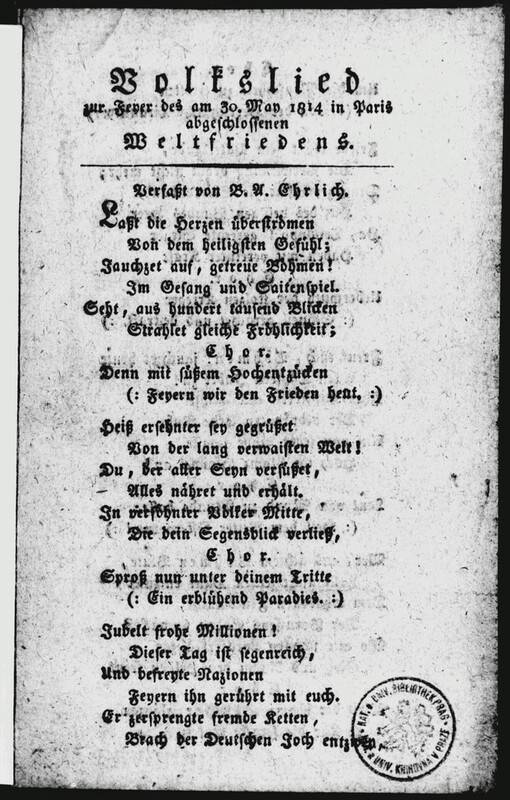 Volkslied
zur Feyer des am 30. May 1814 in Paris
abgeschlossenen
Weltfriedens.
Verfaßt von B. A. Ehrlich.
Laßt die Herzen überströmen
Von dem heiligsten Gefühl;
Jauchzet auf, getreue Böhmen!
Im Gesang und Saitenspiel.
Seht, aus hundert tausend Blicken
Strahlet gleiche Fröhlichkeit;
Chor.
Denn mit süßem Hochentzücken
(: Feyern wir den Frieden heut. :)
Heiß ersehnter sey gegrüßet
Von der lang verwaisten Welt!
Du, der aller Seyn versüßet,
Alles nähret und erhält.
In versöhnter Völker Mitte,
Die dein Segensblick verließ,
Chor.
Sproß nun unter deinem Tritte
(: Ein erblühend Paradies. :)
Jubelt frohe Millionen!
Dieser Tag ist segenreich,
Und befreyte Nazionen
Feyern ihn gerührt mit euch.
Er zersprengte fremde Ketten,
Brach der Deutschen Joch entzwey,
UNIV. BIBLIOTHEK PRAG
UNIV. KNIHOVNA V PRAZE